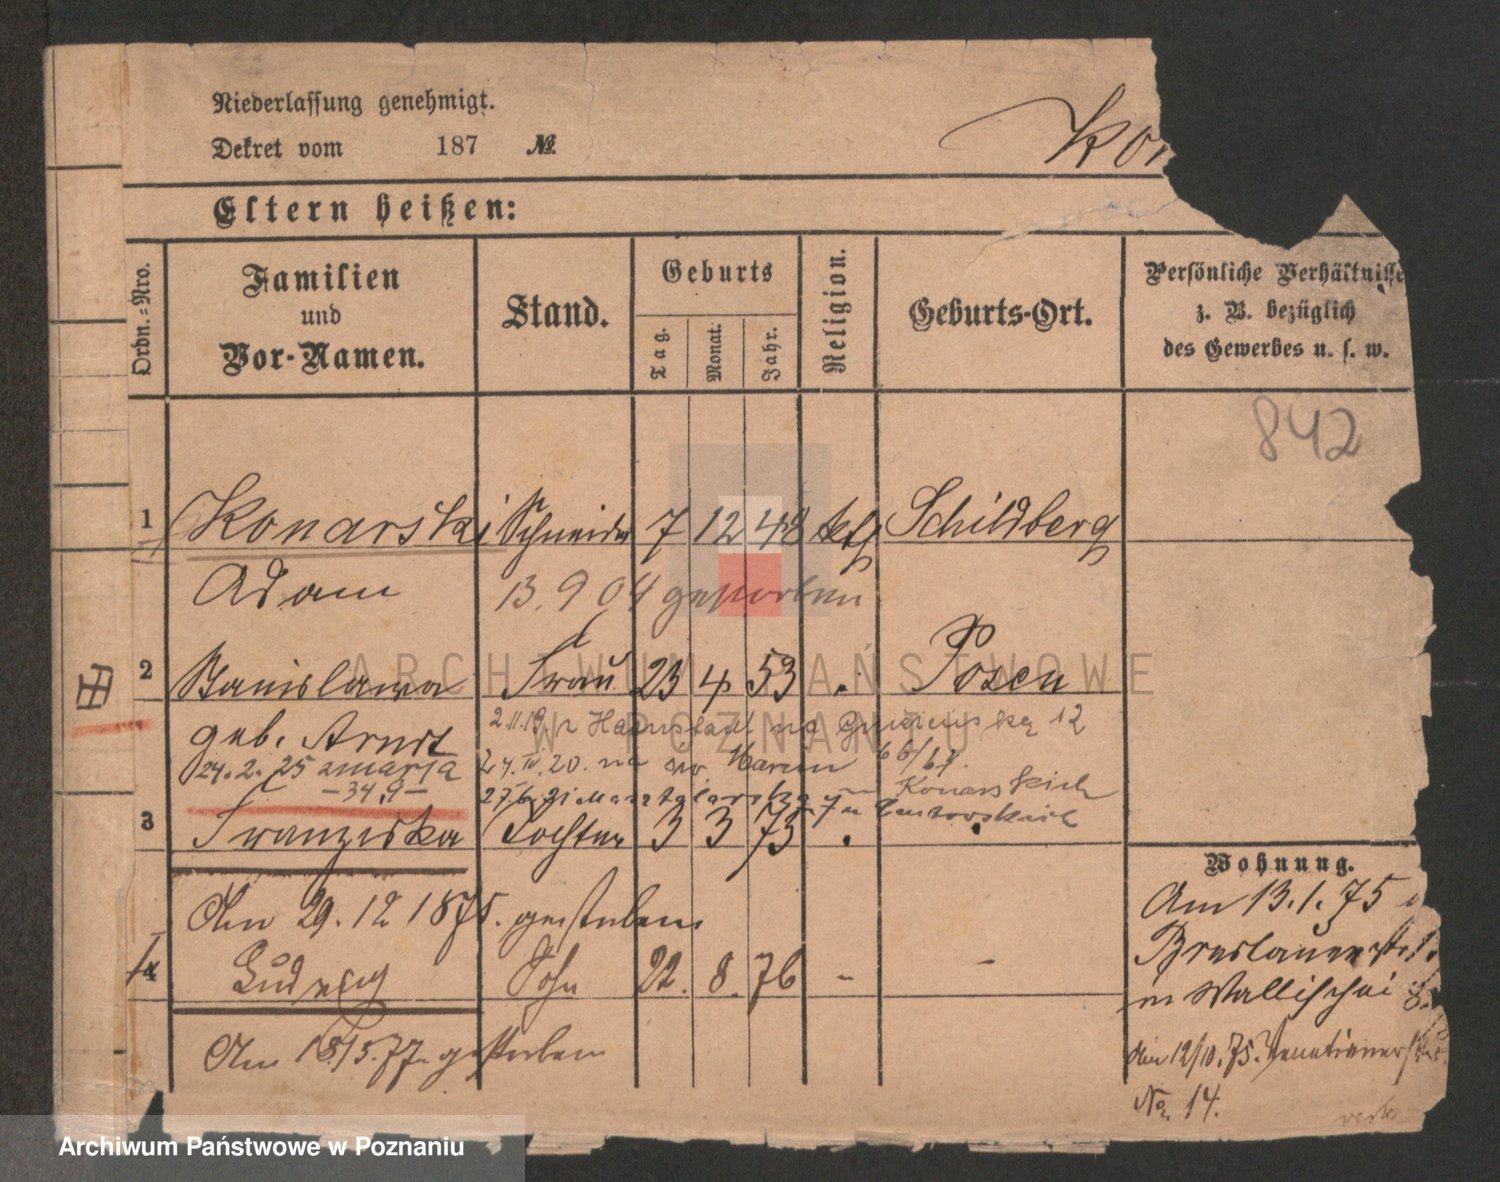 Niederlassung genehmigt.
Dekret vom 187 №
Kon
Eltern heißen:
Ordn.-Nro.
Familien und Vor-Namen.
Stand.
Geburts
Tag.
Monat.
Jahr.
Religion.
Geburts-Ort.
Persönliche Verhältnisse
z. B. bezüglich
des Gewerbes u. s. w.
842
1 Konarski Schneider 7 12 48 kth Schildberg
Adam 13. 9 04 gestorben
2 Stanislawa Frau 23 4 53 " Posen
geb. Arndt
2.11.19 Hannstadt na 12
24. 2. 25 zmarła
24. IV. 20. na św. Marcin 66/67.
–34,9–
Konarskich
3 Franziska Tochter 3 3 75 "
Wohnung.
Am 29. 12 1875. gestorben
Am 13. 1. 75
Breslauerstr.
4 Ludwig Sohn 22. 8. 76 - -
in Wallischei
Am 18/5. 77. gestorben
Am 12/10. 75. Venetianerstr.
No. 14.
ARCHIWUM PAŃSTWOWE
W POZNANIU
Archiwum Państwowe w Poznaniu